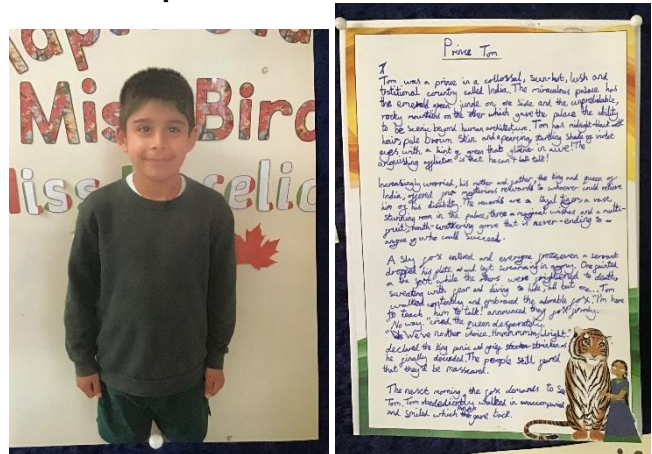 Miss Bird
Prince Tom
Tom was a prince in a collossal, sun-hot, lush and
traditional country called India. The miraculous palace has
the emerald green jungle on one side and the unpredictable,
rocky mountains on the other which gave the palace the ability
to be scenic beyond human architecture. Tom has midnight-black
hair, pale brown skin and a piercing, startling shade of violet
eyes with a hint of green that glister in awe! The
anguishing affliction is that he can't talk!
Increasingly worried, his mother and father, the king and queen of
India, offered mysterious rewards to whoever could relieve
him of his disability. The rewards are a loyal tiger, a vast,
stunning room in the palace, three magical wishes and a multi-
fruit, mouth-watering grove that is never-ending to
anyone who could succeed.
A sly fox entered and everyone froze, even a servant
dropped his plate and left screaming in agony. One fainted
on the spot while the others were frightened to death,
sweating with fear and diving to hide, all but one... Tom
walked and embraced the adorable fox. "I'm here
to teach him to talk!" announced the fox firmly.
"No way," cried the queen desperately.
"We've no other choice. Hmmmmmm, alright."
declared the king panic and grief stricken as
he finally decided. The people still feared
that they'd be massacred.
The next morning, the fox demands to see
Tom. Tom obediently walked in unaccompanied
and smiled which the gave back.